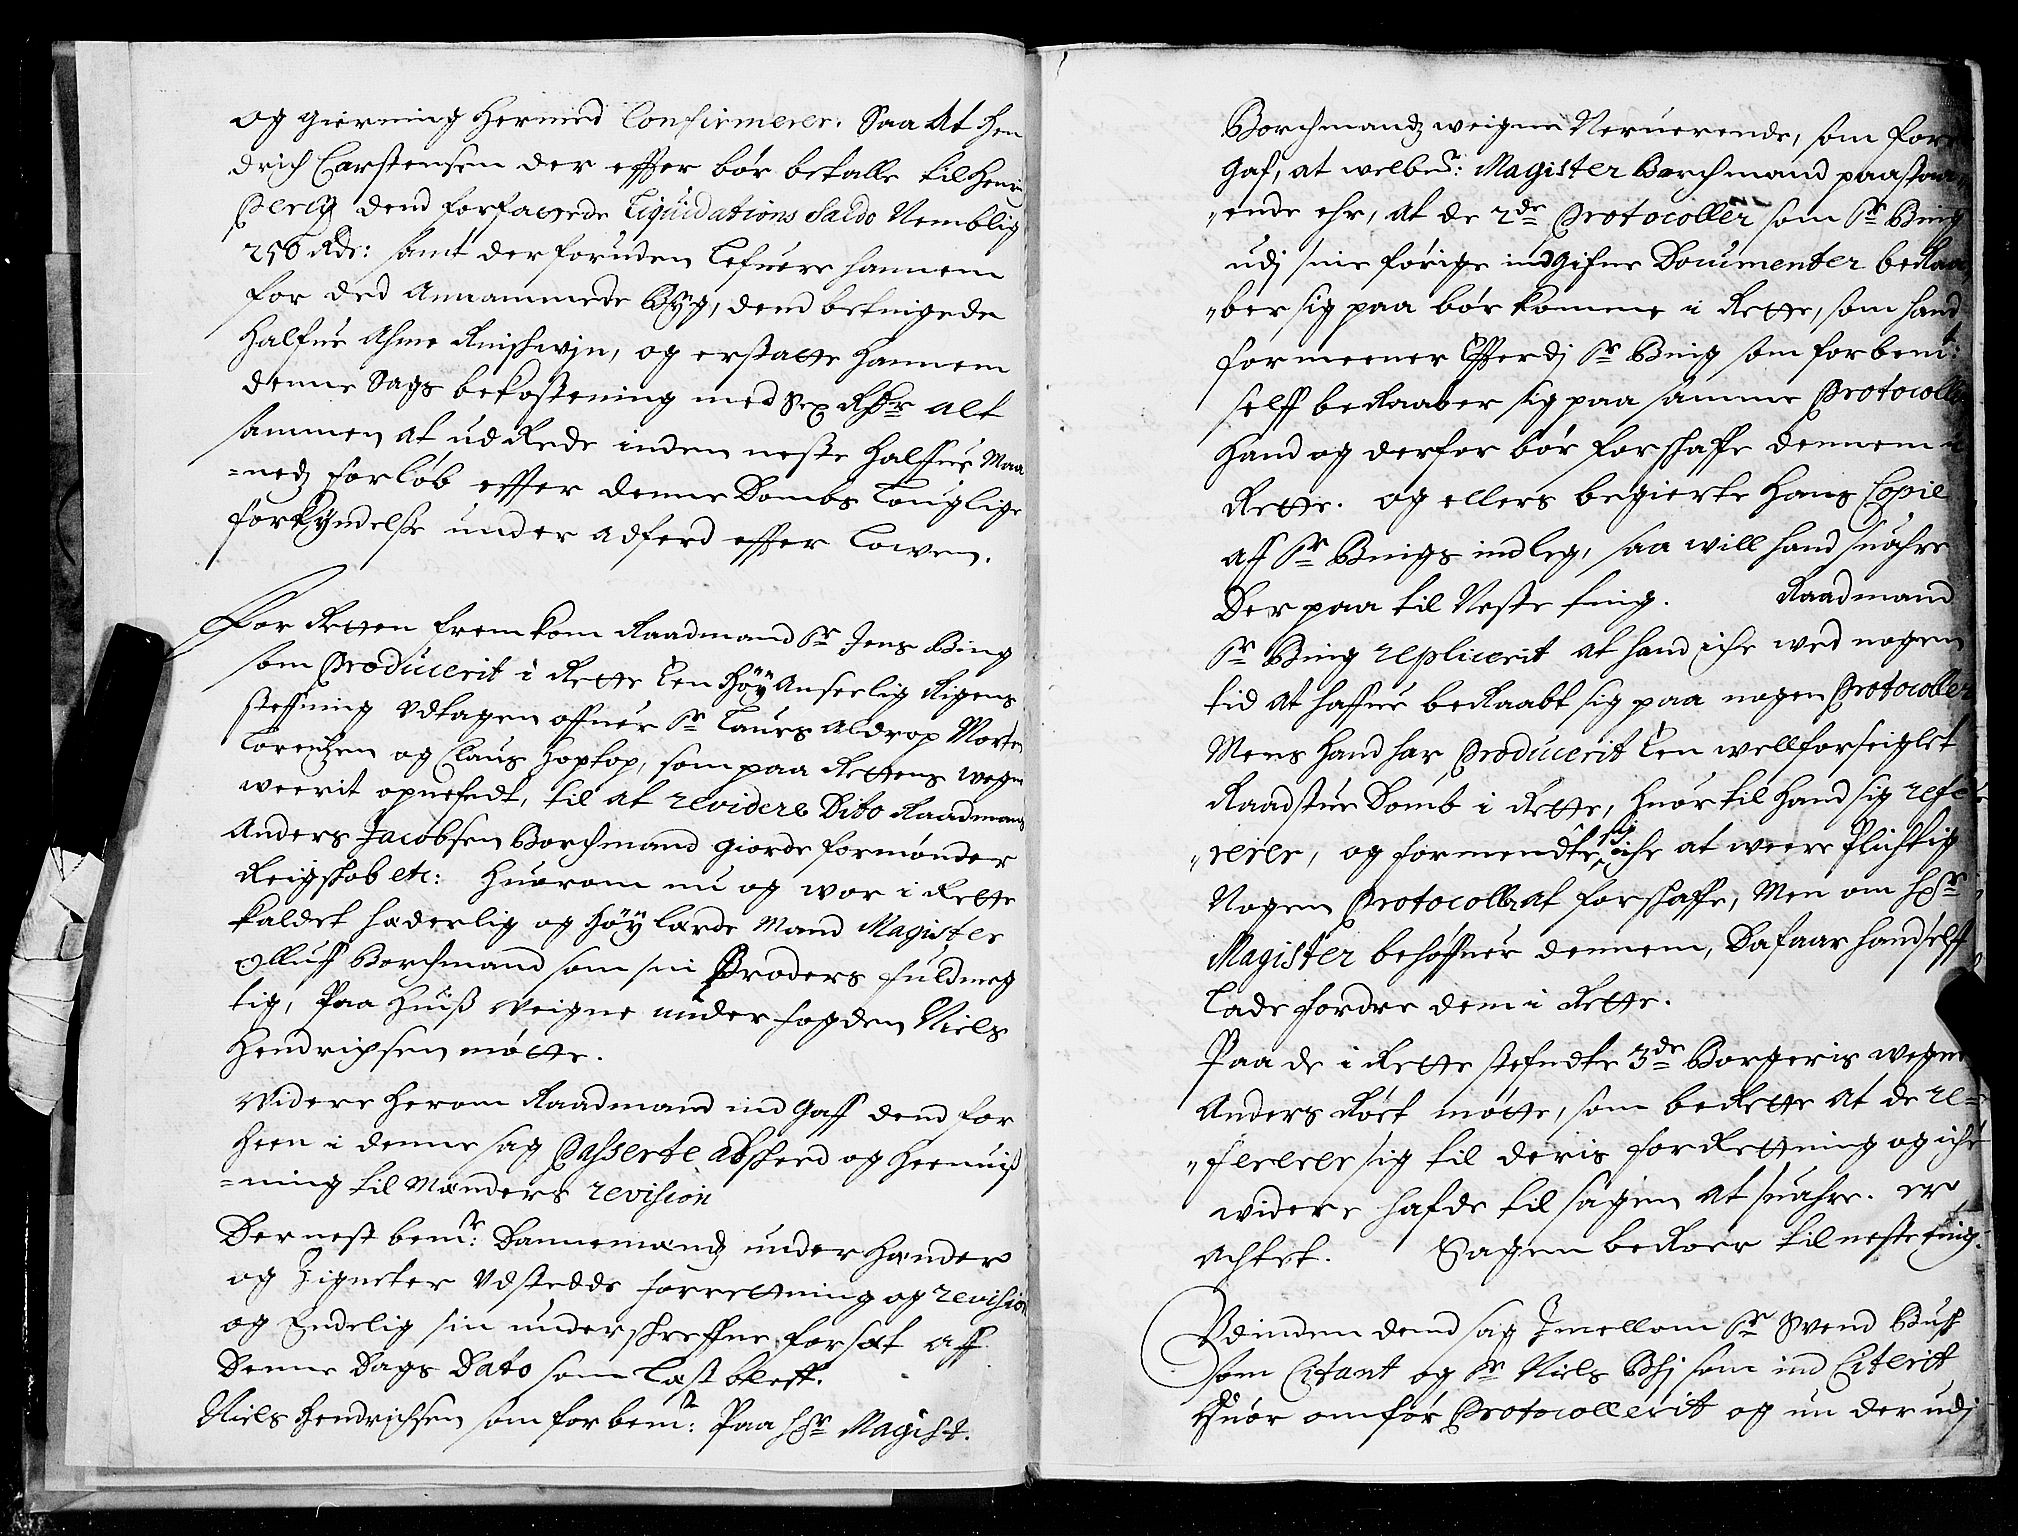 og gierning hermed Confirmerer. Saa At Hen
drich Carstensen der effter bør betalle til Henri
Perch dend forfattede Liquidations Saldo Nemblig
256 Rdr: samt der foruden Lefuere hannem
for ded Annammede Byg, dend betingede
halfue Ahme Rinschwjn, og erstatte hannem
denne Sags bekostening med Sex Rdr alt
sammen at udRede inden neste halffue Maa
=nedz forløb effter denne Dombs Louglige
forkyndelse under adferd effter Lowen.
For Retten fremkom Raadmand Sr Jens Bing
som Producerit i Rette Een Høy Anseelig Rigens
steffning Vdtagen offuer Sr Laurs Aldrop Morten
Lorentzen og Claus Hoptop, som paa Rettens wegne
weerit opnefndt, til at revidere Dito Raadmands
Anders Jacobsen Borchmand giorde formønder
Reigskob etc: Huorom nu og war i Rette
kaldet hæderlig og Høy lærde Mand Magister
Olluff Borchmand som sin Broders fuldmeg
tig, Paa Huiß Veigne underfogden Niels
Hendrichsen møtte.
Videre herom Raadmand ind Gaff dend for
heen i denne sag Passerte Afskeed og Heenuiß
=ning til Mænders revision
Dernest bemte: Dannemændz under Hænder
og Zigneter Vdstedde forrettning og revision
og Endelig sin underskreffne forsæt aff
Denne Dags Dato som Læst bleff.
Niels Hendrichsen som forbemte: Paa Hr Magist.
Borchmandz weigne Neruerende, som fore
Gaf, at welbem: Magister Borchmand paastaa
"ende ehr, at de 2de Protocoller som Sr Bing
udj sine forige indGifne Documenter beRaa
"ber sig paa bør komme i Rette, som hand
formeener Effterdj Sr Bing som forbemt:
self beRaaber sig paa samme Protocoller
Hand og derfor bør forskaffe dennem i
Rette. og ellers begierte Hans Copie
aff Sr Bings indleg, saa will hand suahre
Der paa til Neste ting. Raadmand
Sr Bing replicerit at hand iche wed nogen
tid at haffue beRaabt sig paa nogen Protocoller
Mens hand har Producerit Een wellforseiglet
Raadstue Domb i Rette, huor til hand sig refe
"rerer, og formendte sig iche at weere Plichtig
Nogen Protocoller at forskaffe, Men om Hr
Magister behøffuer dennem, Da faar hand self
Lade fordre dem i Rette.
Paa de i Rette stefndte 3de Borgeris wegne
Anders Roet møtte, som beRette at de re=
"fererer sig til deris forRettning og iche
widere hafde til sagen at suahre. er
achtet. Sagen beRoer til neste ting.
Vdinden dend sag Imellom Sr Svend Busk
som Citant og Sr Niels Bhj som ind Citerit
Huor omfør Protocollerit og nu der udj